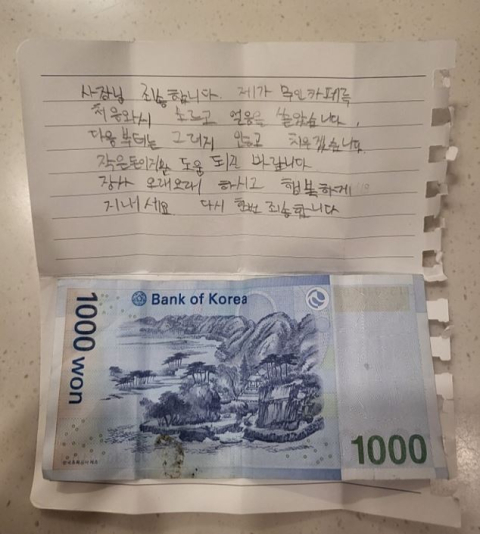 사장님 죄송합니다. 제가 무인카페를
처음와서 모르고 얼음을 쏟았습니다.
다음부터는 그러지 않고 치우겠습니다.
작은돈이지만 도움 되길 바랍니다
장사 오래오래 하시고 행복하게
지내세요 다시 한번 죄송합니다
Bank of Korea
1000 won
1000